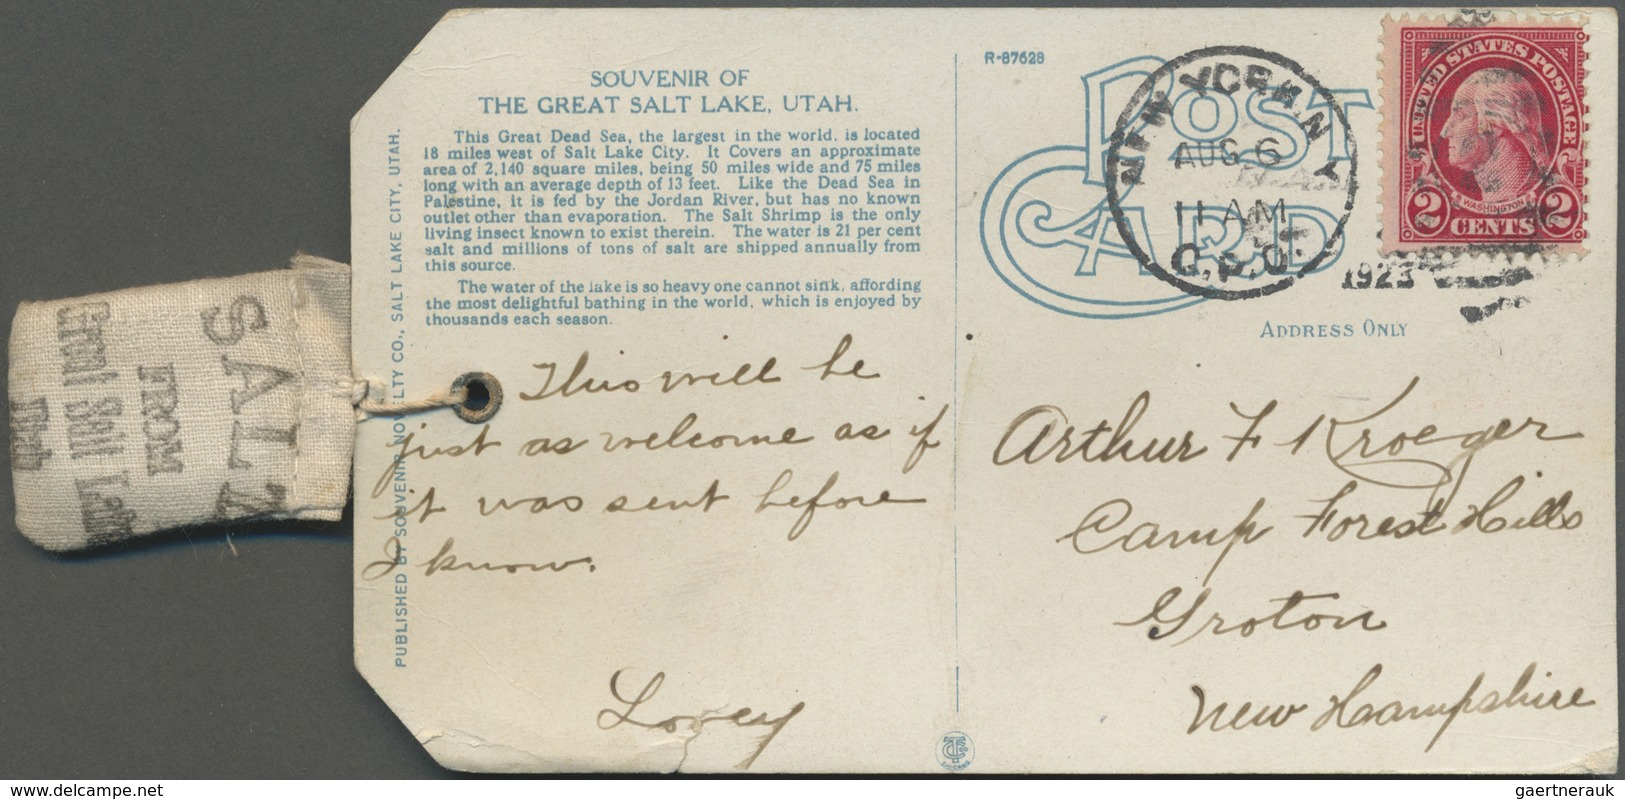 SALT
FROM
Great Salt Lake
Utah
PUBLISHED BY SOUVENIR NOVELTY CO., SALT LAKE CITY, UTAH.
SOUVENIR OF
THE GREAT SALT LAKE, UTAH.
This Great Dead Sea, the largest in the world, is located
18 miles west of Salt Lake City. It Covers an approximate
area of 2,140 square miles, being 50 miles wide and 75 miles
long with an average depth of 13 feet. Like the Dead Sea in
Palestine, it is fed by the Jordan River, but has no known
outlet other than evaporation. The Salt Shrimp is the only
living insect known to exist therein. The water is 21 per cent
salt and millions of tons of salt are shipped annually from
this source.
The water of the lake is so heavy one cannot sink, affording
the most delightful bathing in the world, which is enjoyed by
thousands each season.
This will be
just as welcome as if
it was sent before
I know.
Lovey
R-87628
POST
CARD
NEW YORK, N.Y.
AUG 6
11 AM
G.P.O.
1923
UNITED STATES POSTAGE
WASHINGTON
2 CENTS 2
ADDRESS ONLY
Arthur F Kroeger
Camp Forest Hills
Groton
New Hampshire
CHICAGO
www.delcampe.net
gaertnerauk